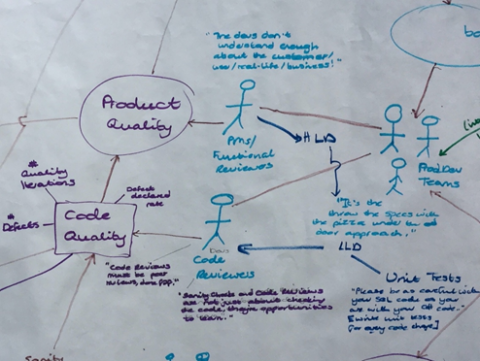 "The devs don't
understand enough
about the customer/
use/real-life/business!"
Product
Quality
PMs/
Functional
Reviewers
HLD
ProdDev
Teams
# Quality
Iterations
Defect
declared
rate
* Defects
Code
Quality
"It's the
throw the specs with
the pizza under the
door approach."
LLD
Devs
Code
Reviewers
"Code Reviews
must be peer
reviews,
"Sanity Checks and Code Reviews
are not just about checking
the code, they're opportunities
to learn."
Unit Tests
"Please be as careful with
your SQL code as you
are with your C# code."
[Write unit tests
for every code change]